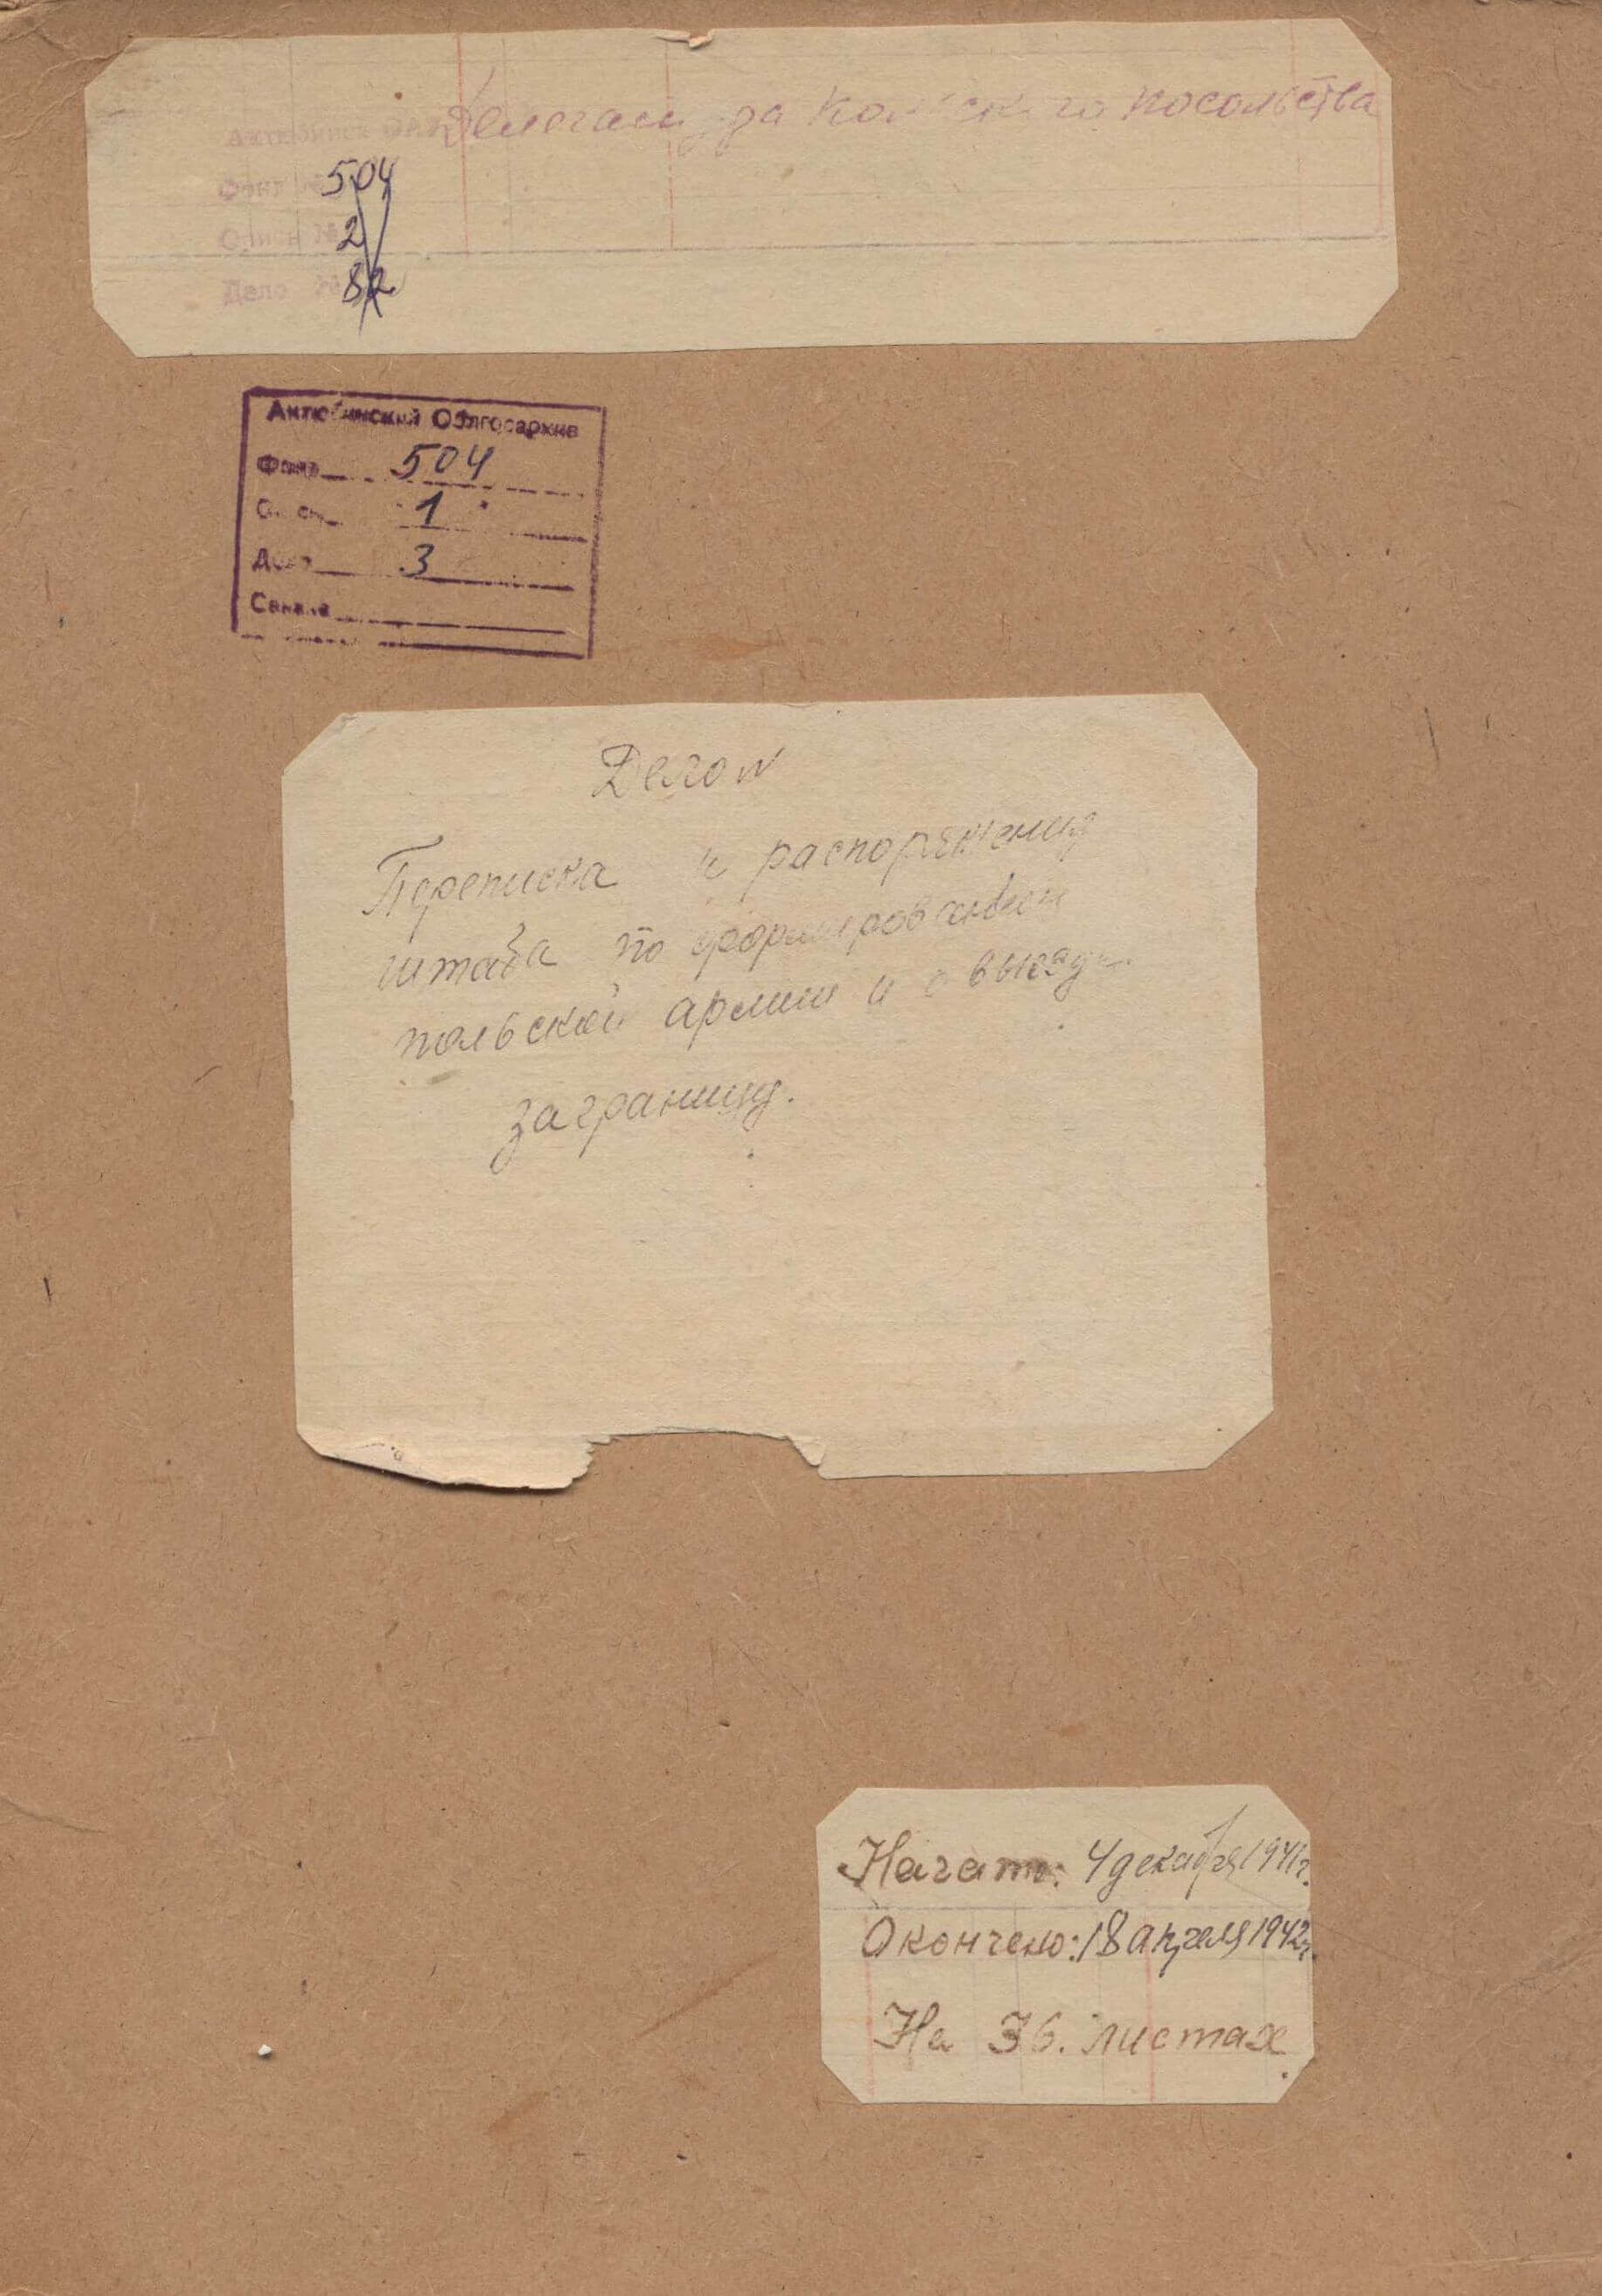 Делегатура Польского посольства
Актюбинск
Фонд № 504
Опись № 2
Дело № 82
Актюбинский Облгосархив
Фонд 504
Опись 1
Дело 3
Дело №
Переписка и распоряжения
штаба по формированию
польской армии и о выезде
заграницу.
Начато: 4 декабря 1941 г.
Окончено: 18 апреля 1942 г.
На 36. листах